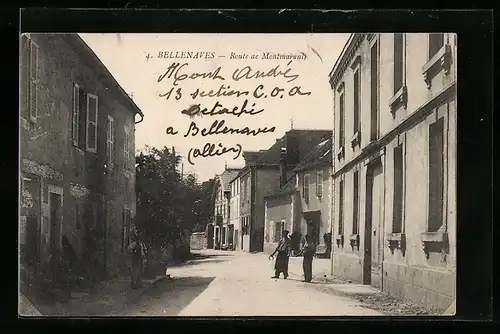 4. BELLENAVES — Route de Montmarault
Mont André
13 section C.O.A
détaché
a Bellenaves
(allier)